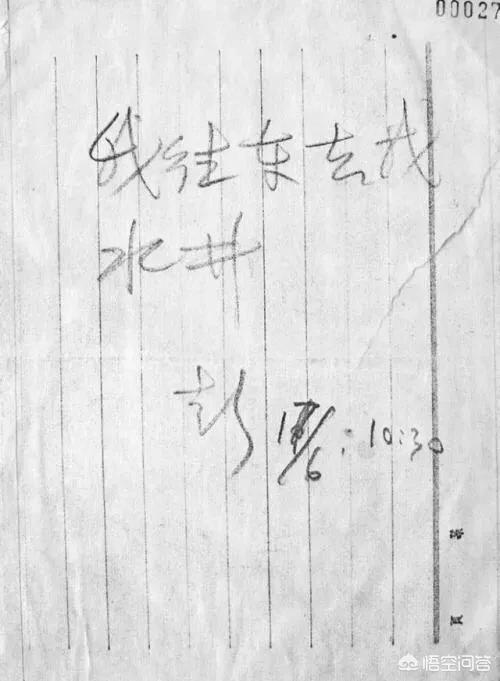 00027
我往东去找
水井
彭 17/6:10:30
第
页
悟空问答